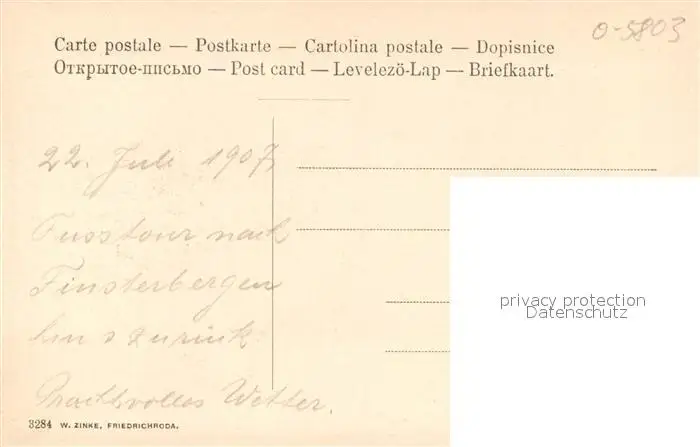 0-5803
Carte postale — Postkarte — Cartolina postale — Dopisnice
Открытое-письмо — Post card — Levelező-Lap — Briefkaart.
22. Juli 1907
Fusstour nach
Finsterbergen
hin & zurück
Prachtvolles Wetter.
privacy protection
Datenschutz
3284 W. ZINKE, FRIEDRICHRODA.